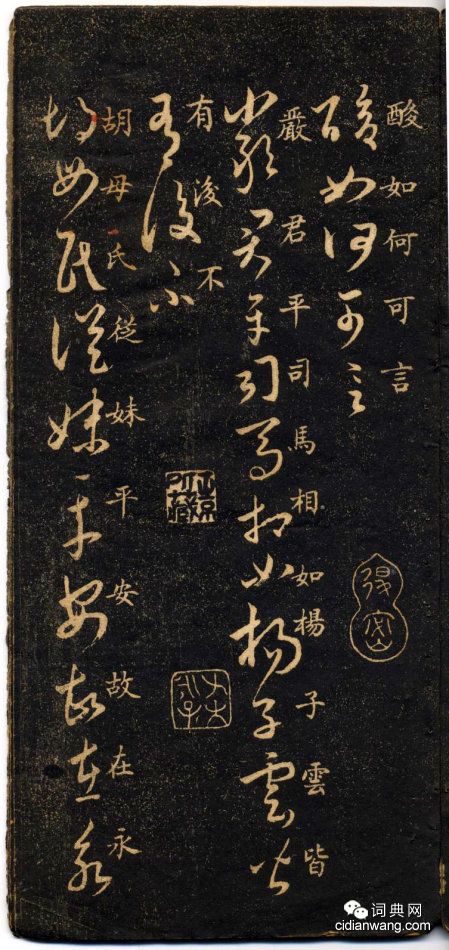 酸如何可言
嚴君平司馬相如楊子雲皆
有後不
胡母氏從妹平安故在永
词典网
cidianwang.com